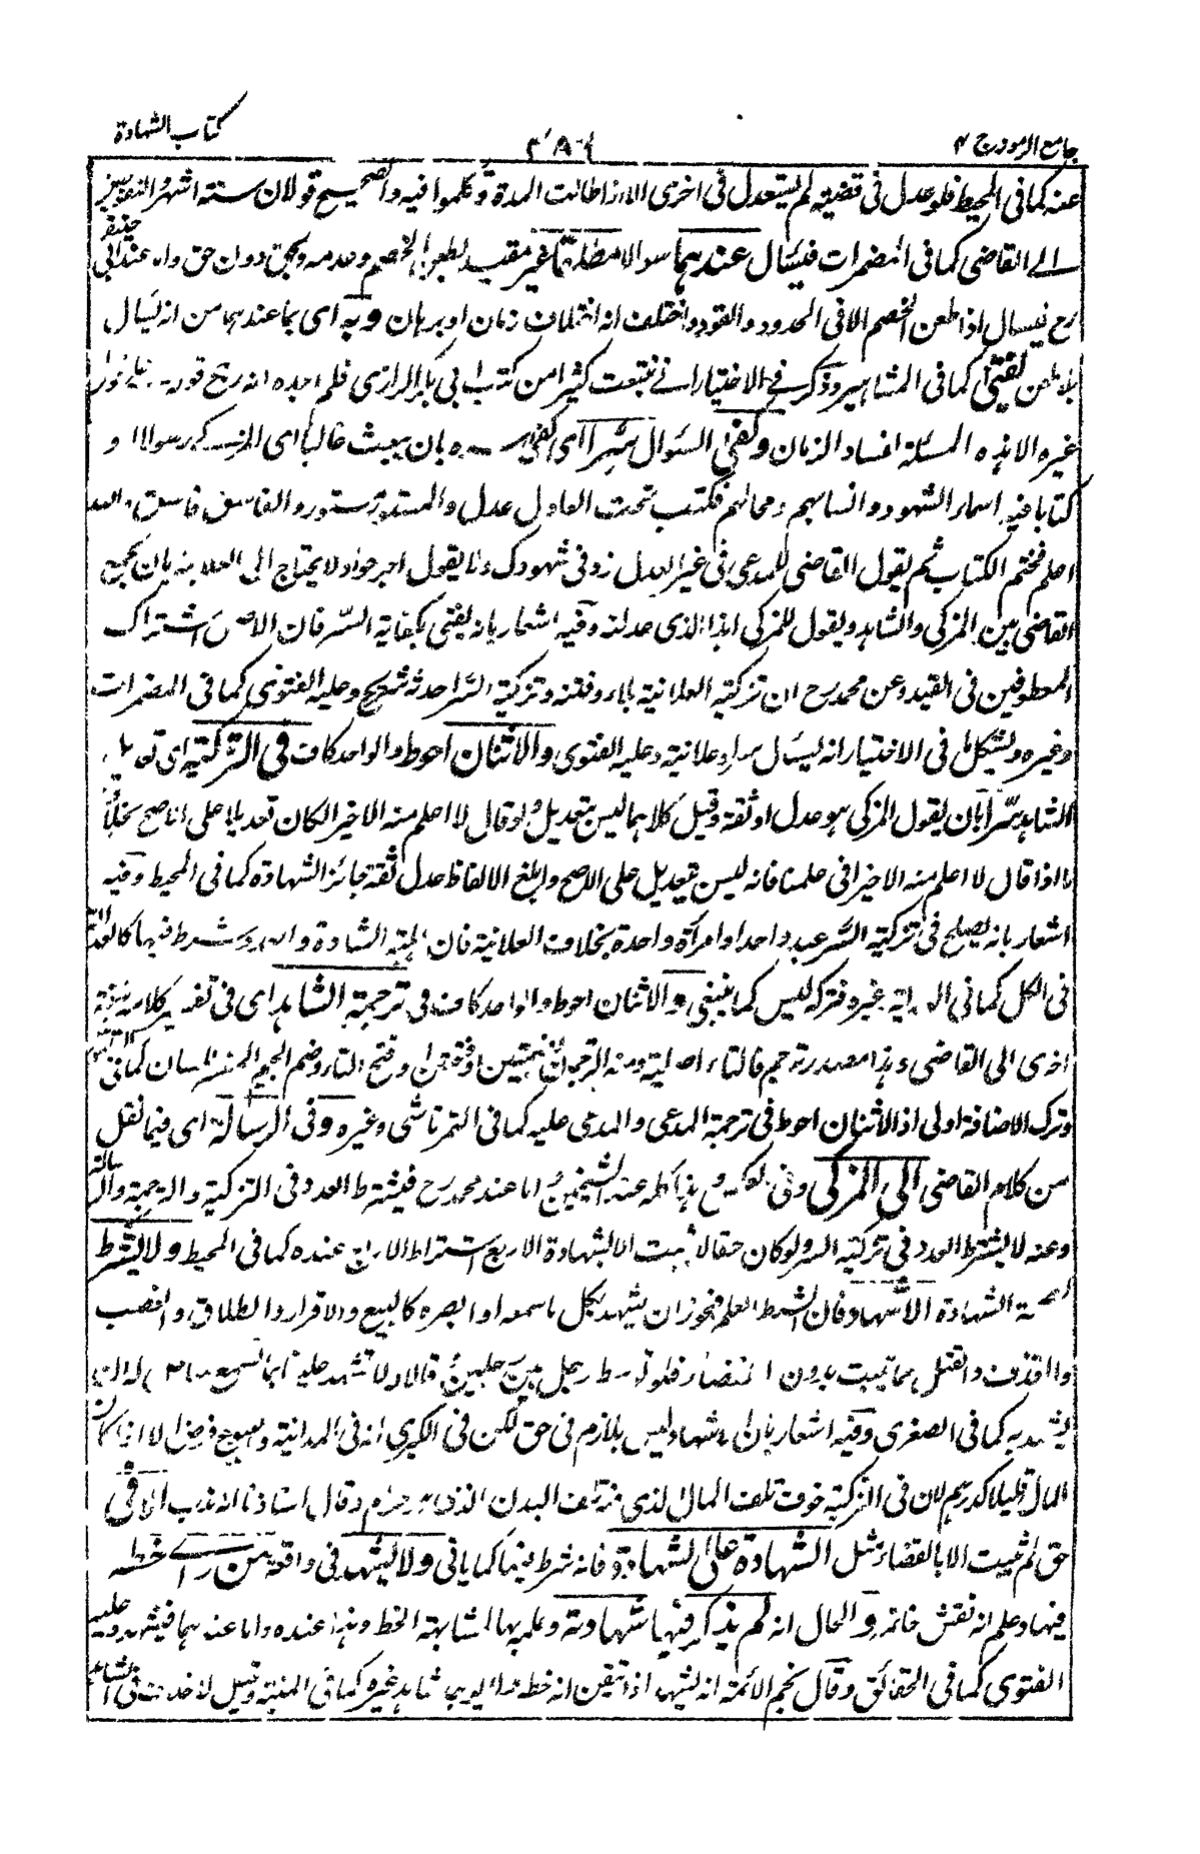 جامع الرموز ج ٢
كتاب الشهادة
عنه كما في المحيط فلو عدل في قضية لم يستعدل في اخرى الا اذا طالت المدة وتكلموا فيه والصحيح قولان ستة اشهر التفويض
الى القاضي كما في المضمرات فيسأل عندهما سوالا مطلقا غير مقيد بطعن الخصم وعدمه وبحق دون حق واما عند ابي حنيفة
رح فيسال اذا طعن الخصم الا في الحدود والقود واختلف انه اختلاف زمان او برهان وبه اى بما عندهما من انه يسال
بلا طعن يفتى كما في المشاهير وذكر في الاختيار اني تتبعت كثيرا من كتب ابي بكر الرازي فلم اجده انه رجح قوله على قول
غيره الا هذه المسئلة لفساد الزمان وكفى السؤال سرا اى بان يبعث غالبا اى المزكى رسولا او
كتابا فيه اسماء الشهود وانسابهم ومحالهم فكتب تحت العادل عدل والمستور مستور والفاسق فاسق والله
اعلم فختم الكتاب ثم يقول القاضي للمدعى في غير العدل زد في شهودك ولا يقول اجرحوا ولا يحتاج الى العلانية بان يجمع
القاضي بين المزكي والشاهد ويقول للمزكي اهذا الذي عدلته وفيه اشعار بانه يفتى بكفاية السر فان الاصل اشتراك
المعطوفين في القيد وعن محمد رح ان تزكية العلانية بلاء وفتنة وتزكية السر احدثه شريح وعليه الفتوى كما في المضمرات
وغيره ويشكل بما في الاختيار انه يسأل سرا وعلانية وعليه الفتوى والاثنان احوط والواحد كاف في التزكية اى تعديل
الشاهد سرا بان يقول المزكي هو عدل او ثقة وقيل كلاهما ليس بتعديل ولو قال لا اعلم منه الا خيرا لكان تعديلا على الاصح بخلاف
ما اذا قال لا اعلم منه الا خيرا في علمنا فانه ليس بتعديل على الاصح وابلغ الالفاظ عدل ثقة جائز الشهادة كما في المحيط وفيه
اشعار بانه يصلح في تزكية السر عبد واحد او امرأة واحدة بخلاف العلانية فان اهلية الشهادة والعدد شرط فيها كالعدالة
في الكل كما في الهداية وغيره فتركه ليس كما ينبغي والاثنان احوط والواحد كاف في ترجمة الشاهد اى في تفسير كلامه بلغة
اخرى الى القاضي وهذا مصدر ترجم فالتاء اصلية ومنه الترجمان بضمتين او فتحتين او فتح التاء وضم الجيم المفسر للسان كما في
وترك الاضافة اولى اذ الاثنان احوط في ترجمة المدعى والمدعى عليه كما في التمرتاشي وغيره وفي الرسالة اى فيما نقل
من كلام القاضي الى المزكي وفي وهذا كله عند الشيخين واما عند محمد رح فيشترط العدد في التزكية والترجمة والرسالة
وعنه لا يشترط العدد في تزكية السر ولو كان حقا لا يثبت الا بشهادة الاربع اشتراط الاربع عنده كما في المحيط ولا يشترط
لصحة الشهادة الاشهاد فان الشرط العلم فيجوز ان يشهد بكل ما سمعه او ابصره كالبيع والاقرار والطلاق والغصب
والقذف والقتل مما يثبت بدون القضاء فلو توسط رجل بين رجلين فقالا ولا تشهد علينا بما تسمع منا له ان
يشهد به كما في الصغرى وفيه اشعار بان الاشهاد ليس بلازم في حق لكن في الكبرى انه في المداينة والبيوع فرض الا اذا كان
المال قليلا كدرهم لان في التزكية خوف تلف المال الذى به تلف البدن الذى هو حرام وقال استاذنا انه ندب الا في
حق لم يثبت الا بالقضاء مثل الشهادة على الشهادة فانه شرط فيها كما ياتي ولا يشهد في واقعة من رأى خطه
فيها وعلم انه نقش خاتمه والحال انه لم يذكر فيها شهادته وعلمه بها لمشابهة الخط وهذا عنده واما عندهما فيشهد وعليه
الفتوى كما في الحقائق وقال نجم الائمة انه يشهد اذا تيقن انه خطه شاهد غيره كما في المنية وقيل لا خلاف في الشاهد